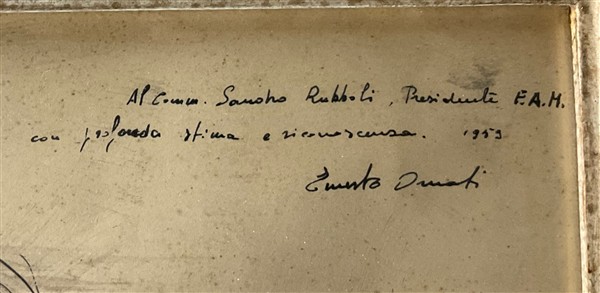 Al Comm. Sandro Rubboli, Presidente F.A.M.
con profonda stima e riconoscenza. 1959
Ernesto